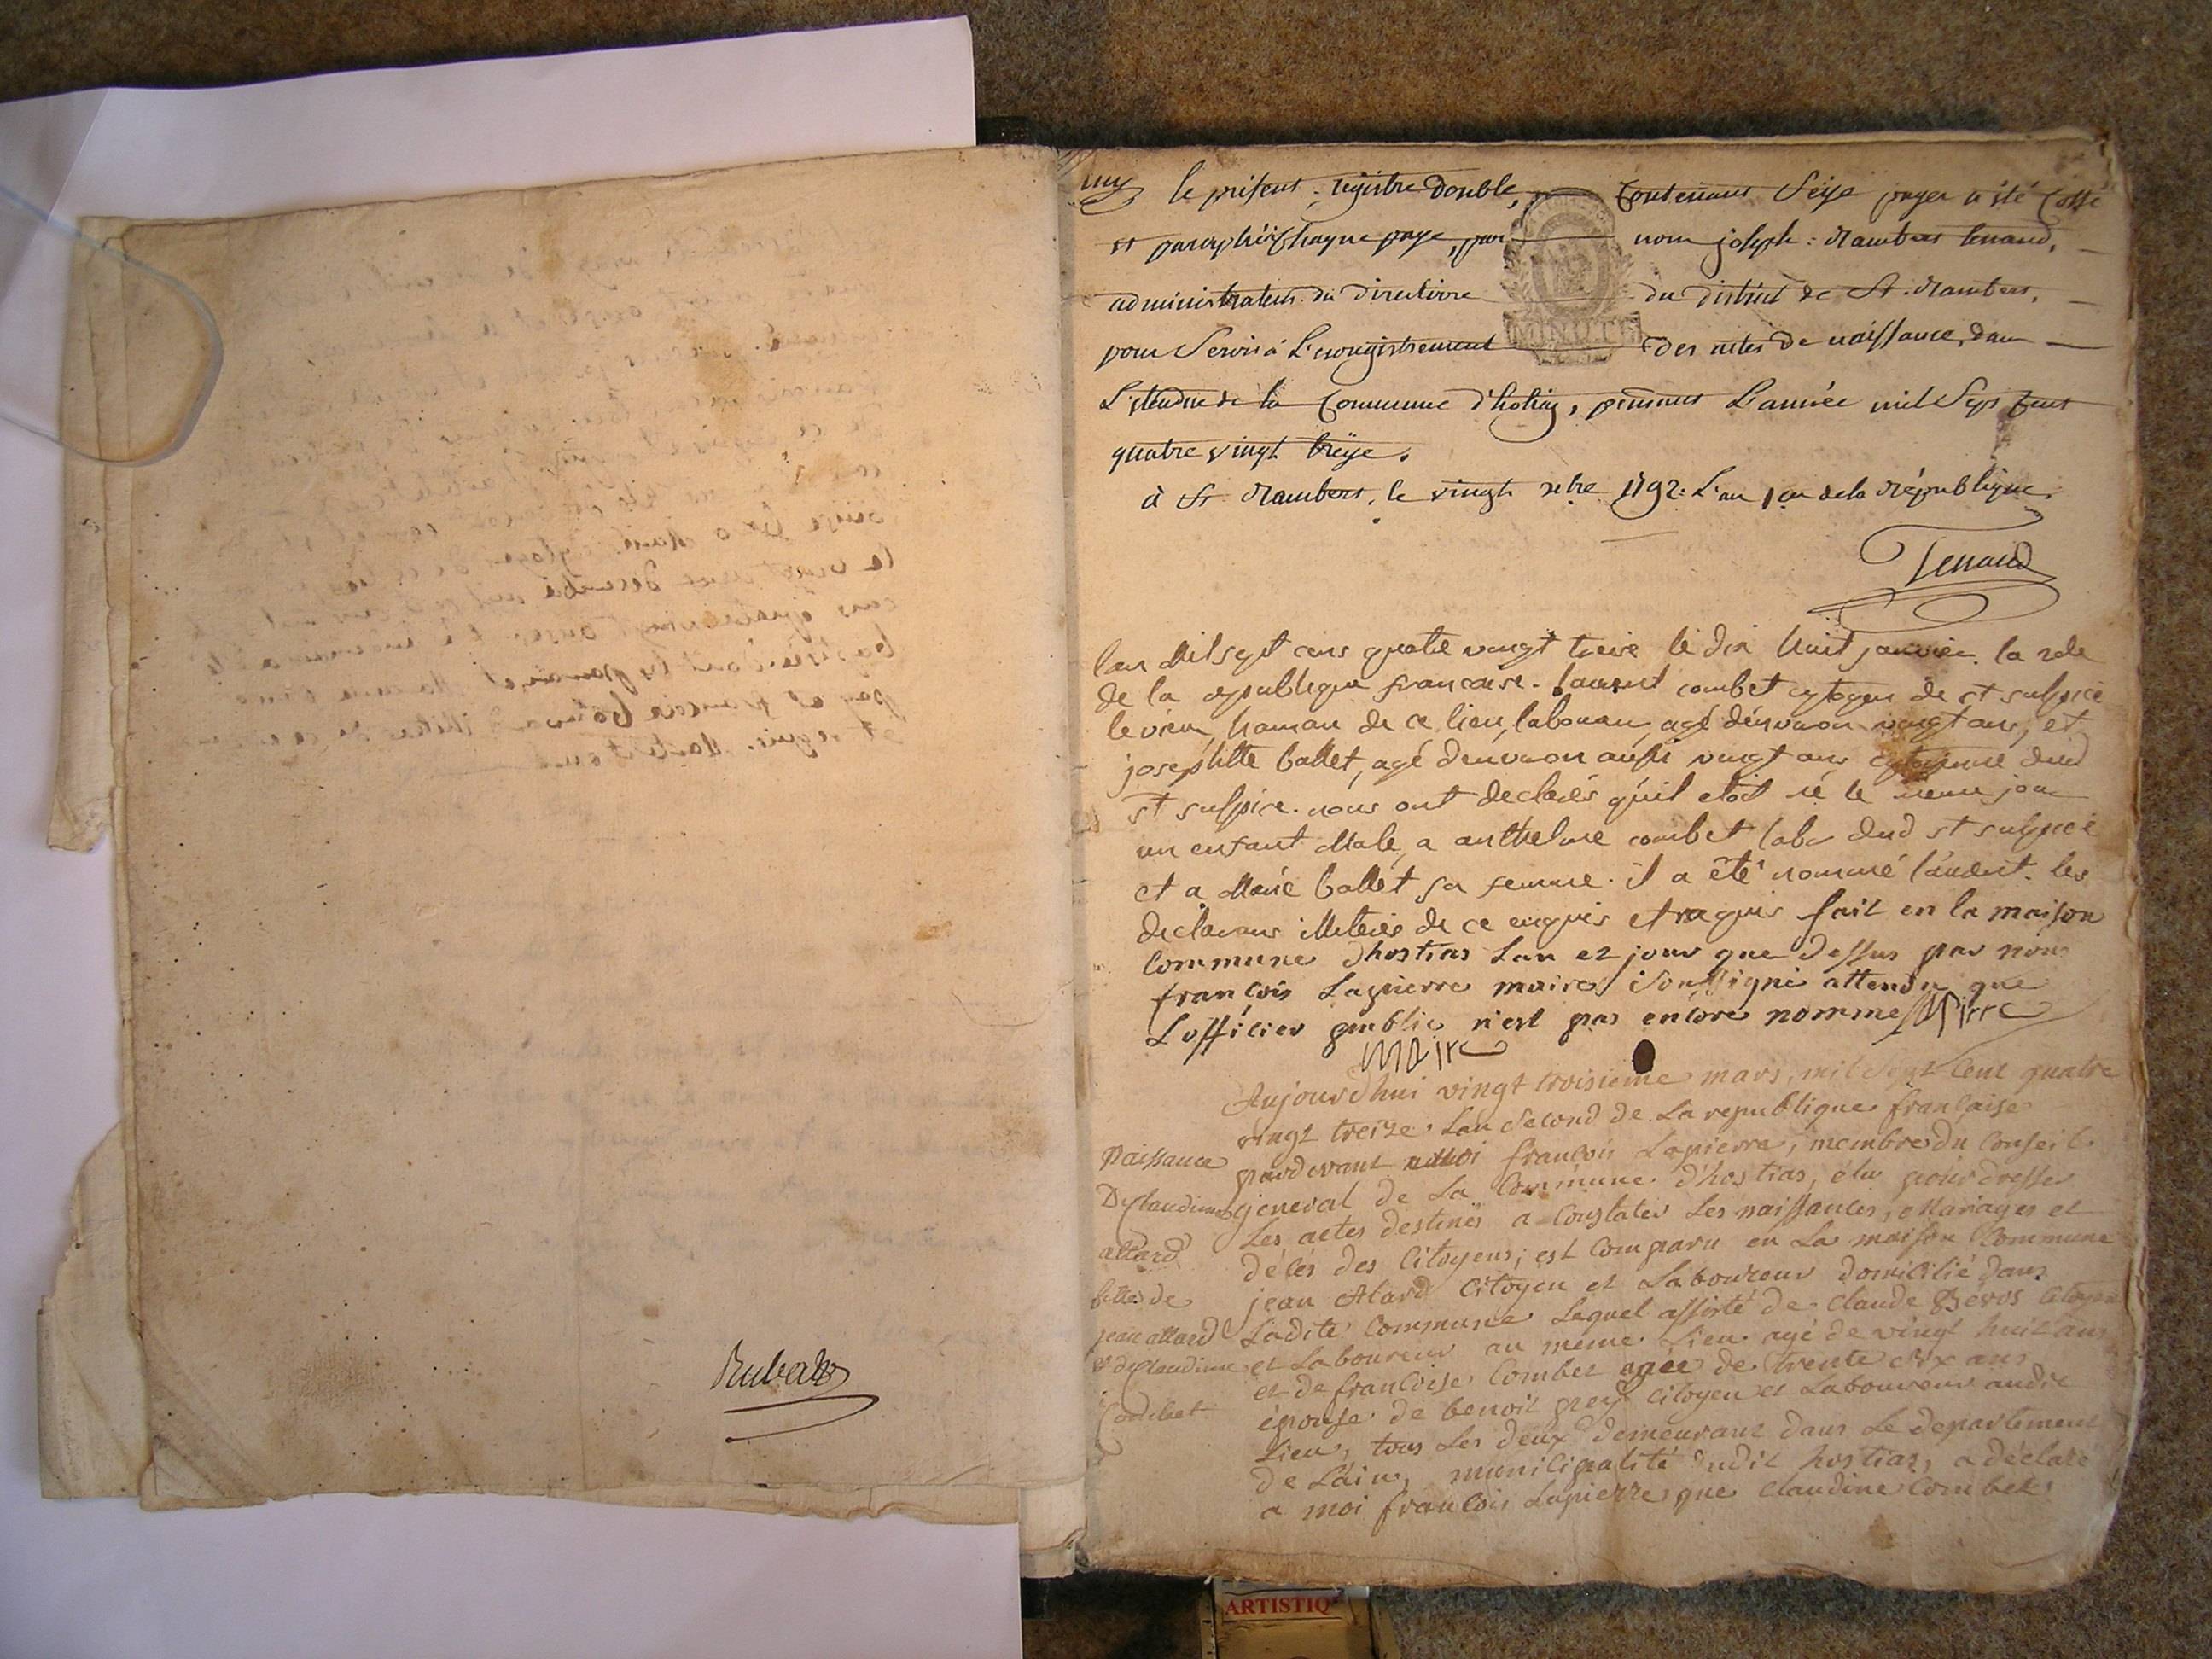 Rubat
le présent registre double, Contenant Seize pages a été Cotté
et paraphé à Chaque page, par nous joseph: Rambert tenand,
administrateur du directoire du district de St. Rambert,
MINUTE
pour Servir à L'enregistrement des actes de naissance, dans
L'étendue de la Commune d'hostiaz, pendant L'année mil Sept Cent
quatre vingt treize.
à St. Rambert, le vingt xbre 1792. L'an 1er de la République.
Tenand
lan Mil sept cens quatre vingt treise le dix huit janvier. la 2de
de la republique francaise. laurent combet cytoyen de st sulpice
le vieu, hamau de ce lieu, laboureur, agé d'environ vingt ans, et
josephtte ballet, agé denviron aussi vingt ans cytoyenne dud
st sulpice. nous ont declarés qu'il etoit né le meme jour
un enfant Male, a anthelme combet labr dud st sulpice
et a Marie ballet sa femme. il a êté nommé laurent. les
declarans illiterés de ce enquis et requis fait en la maison
Commune dhostias Lan et jour que dessus par nous
françois Lapierre maire Soussigné attendu que
Lofficier public n'est pas encore nommé laPirre
maire
Aujourdhui vingt troisieme mars, mil Sept Cent quatre
vingt treize. Lan Second de La republique francaise
pardevant moi francois Lapierre, membre du Conseil
general de La Commune d'hostias, élu pour dresser
Les actes destinés a Constater Les naissances, Mariages et
décés des Citoyens; est Comparu en La maison Commune
jean Alard Citoyen et Laboureur domicilié dans
Ladite Commune Lequel assisté de Claude Bevos Citoyen
et Laboureur au meme Lieu agé de vingt huit ans
et de francoise Combet agée de trente dix ans
épouse de benoit grey Citoyen et Laboureur audit
Lieu, tous Les deux demeurant dans Le departement
de Lain, municipalité dudit hostias, a déclaré
a moi francois Lapierre que Claudine Combet
Naissance
De Claudine
allard
fille de
jean allard
et de Claudine